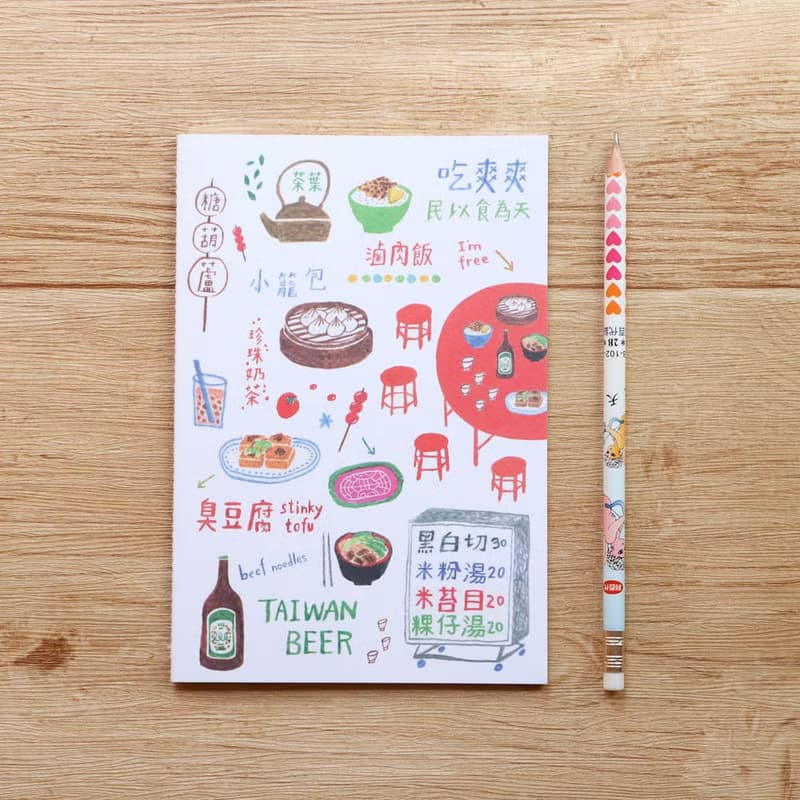 茶葉
吃爽爽
民以食為天
糖葫蘆
滷肉飯
I'm
free
小籠包
珍珠奶茶
臭豆腐 stinky
tofu
beef noodles
TAIWAN
BEER
黑白切30
米粉湯20
米苔目20
粿仔湯20
2B
天